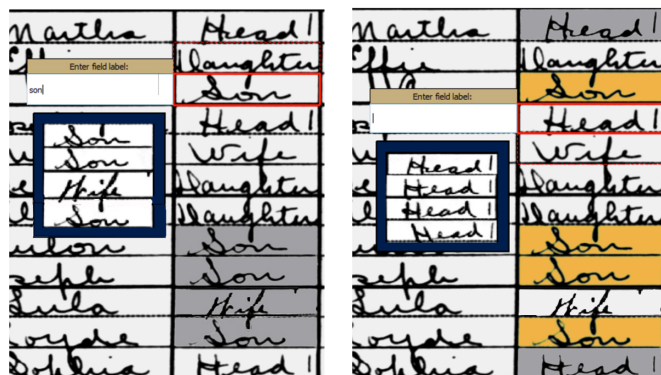 Martha Head 1
Daughter
Enter field label:
son
Son
Head 1
Wife
Daughter
Daughter
Son
Son
Son
Wife
Son
Son
seph Son
Lula Wife
Son
Sophia Head 1
Martha Head 1
Effie Daughter
Son
Enter field label:
Head 1
Wife
Daughter
Daughter
Head 1
Head 1
Head 1
Head 1
Son
seph Son
Lula Wife
Son
Sophia Head 1